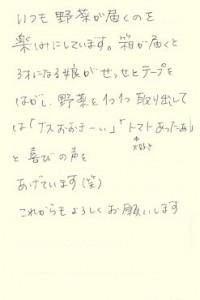 いつも野菜が届くのを
楽しみにしています。箱が届くと
3才になる娘がせっせとテープを
はがし、野菜を1つ1つ取り出して
は「ナスおおきーい」「トマトあったぁ」
大好き
と喜びの声を
あげています(笑)
これからもよろしくお願いします